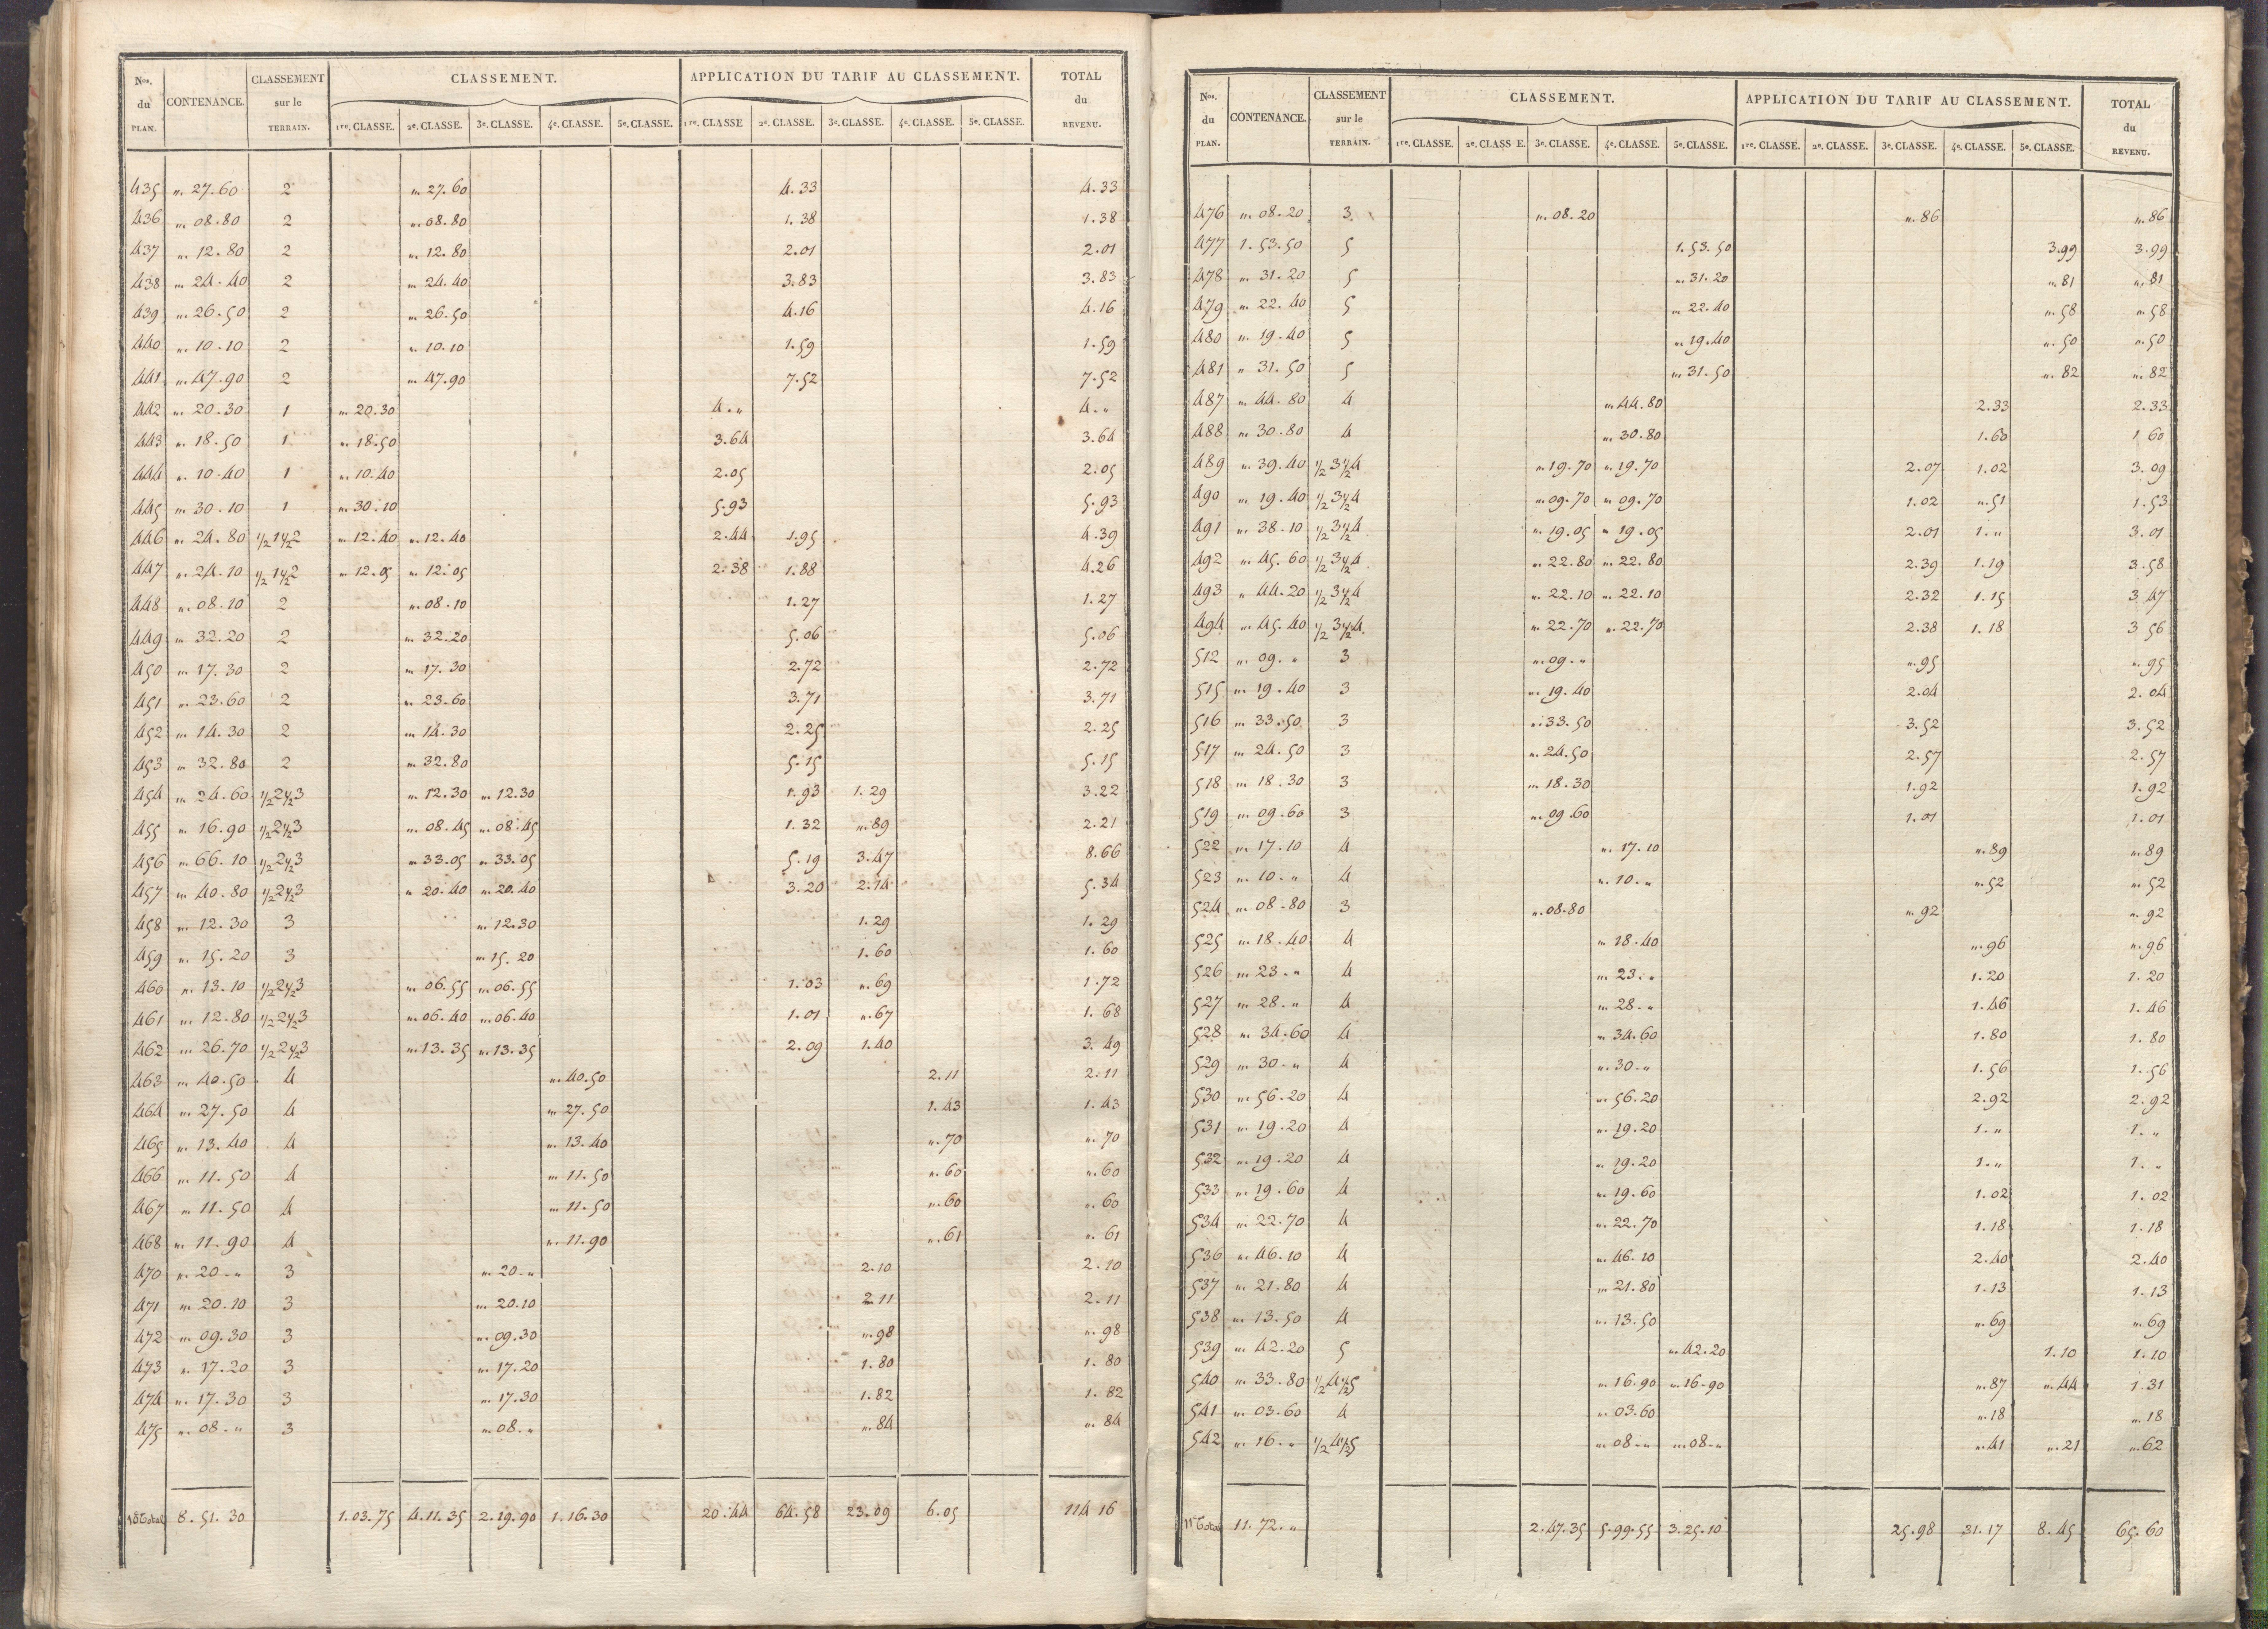 Nos. du PLAN. CONTENANCE. CLASSEMENT sur le TERRAIN. CLASSEMENT. APPLICATION DU TARIF AU CLASSEMENT. TOTAL du REVENU.
1re. CLASSE. 2e. CLASSE. 3e. CLASSE. 4e. CLASSE. 5e. CLASSE. 1re. CLASSE 2e. CLASSE. 3e. CLASSE. 4e. CLASSE. 5e. CLASSE.
435 ". 27.60 2 ". 27.60 4.33 4.33
436 ". 08.80 2 ". 08.80 1.38 1.38
437 ". 12.80 2 ". 12.80 2.01 2.01
438 ". 24.40 2 ". 24.40 3.83 3.83
439 ". 26.50 2 ". 26.50 4.16 4.16
440 ". 10.10 2 ". 10.10 1.59 1.59
441 ". 47.90 2 ". 47.90 7.52 7.52
442 ". 20.30 1 ". 20.30 4." 4."
443 ". 18.50 1 ". 18.50 3.64 3.64
444 ". 10.40 1 ". 10.40 2.05 2.05
445 ". 30.10 1 ". 30.10 5.93 5.93
446 ". 24.80 1/2 1 1/2 2 ". 12.40 ". 12.40 2.44 1.95 4.39
447 ". 24.10 1/2 1 1/2 2 ". 12.05 ". 12.05 2.38 1.88 4.26
448 ". 08.10 2 ". 08.10 1.27 1.27
449 ". 32.20 2 ". 32.20 5.06 5.06
450 ". 17.30 2 ". 17.30 2.72 2.72
451 ". 23.60 2 ". 23.60 3.71 3.71
452 ". 14.30 2 ". 14.30 2.25 2.25
453 ". 32.80 2 ". 32.80 5.15 5.15
454 ". 24.60 1/2 2 1/2 3 ". 12.30 ". 12.30 1.93 1.29 3.22
455 ". 16.90 1/2 2 1/2 3 ". 08.45 ". 08.45 1.32 ". 89 2.21
456 ". 66.10 1/2 2 1/2 3 ". 33.05 ". 33.05 5.19 3.47 8.66
457 ". 40.80 1/2 2 1/2 3 ". 20.40 ". 20.40 3.20 2.14 5.34
458 ". 12.30 3 ". 12.30 1.29 1.29
459 ". 15.20 3 ". 15.20 1.60 1.60
460 ". 13.10 1/2 2 1/2 3 ". 06.55 ". 06.55 1.03 ". 69 1.72
461 ". 12.80 1/2 2 1/2 3 ". 06.40 ". 06.40 1.01 ". 67 1.68
462 ". 26.70 1/2 2 1/2 3 ". 13.35 ". 13.35 2.09 1.40 3.49
463 ". 40.50 4 ". 40.50 2.11 2.11
464 ". 27.50 4 ". 27.50 1.43 1.43
465 ". 13.40 4 ". 13.40 ". 70 ". 70
466 ". 11.50 4 ". 11.50 ". 60 ". 60
467 ". 11.50 4 ". 11.50 ". 60 ". 60
468 ". 11.90 4 ". 11.90 ". 61 ". 61
470 ". 20." 3 ". 20." 2.10 2.10
471 ". 20.10 3 ". 20.10 2.11 2.11
472 ". 09.30 3 ". 09.30 ". 98 ". 98
473 ". 17.20 3 ". 17.20 1.80 1.80
474 ". 17.30 3 ". 17.30 1.82 1.82
475 ". 08." 3 ". 08." ". 84 ". 84
Total 8.51.30 1.03.75 4.11.35 2.19.90 1.16.30 20.44 64.58 23.09 6.05 114 16
Nos. du PLAN. CONTENANCE. CLASSEMENT sur le TERRAIN. CLASSEMENT. APPLICATION DU TARIF AU CLASSEMENT. TOTAL du REVENU.
1re. CLASSE. 2e. CLASS E. 3e. CLASSE. 4e. CLASSE. 5e. CLASSE. 1re. CLASSE. 2e. CLASSE. 3e. CLASSE. 4e. CLASSE. 5e. CLASSE.
476 ". 08.20 3 ". 08.20 ". 86 ". 86
477 1.53.50 5 1.53.50 3.99 3.99
478 ". 31.20 5 ". 31.20 ". 81 ". 81
479 ". 22.40 5 ". 22.40 ". 58 ". 58
480 ". 19.40 5 ". 19.40 ". 50 ". 50
481 " 31.50 5 ". 31.50 ". 82 ". 82
487 ". 44.80 4 ". 44.80 2.33 2.33
488 ". 30.80 4 ". 30.80 1.60 1 60
489 ". 39.40 1/2 3 1/2 4 ". 19.70 ". 19.70 2.07 1.02 3.09
490 ". 19.40 1/2 3 1/2 4 ". 09.70 ". 09.70 1.02 ". 51 1.53
491 ". 38.10 1/2 3 1/2 4 ". 19.05 ". 19.05 2.01 1." 3.01
492 ". 45.60 1/2 3 1/2 4 ". 22.80 ". 22.80 2.39 1.19 3.58
493 " 44.20 1/2 3 1/2 4 ". 22.10 ". 22.10 2.32 1.15 3 47
494 ". 45.40 1/2 3 1/2 4 ". 22.70 ". 22.70 2.38 1.18 3 56
512 ". 09." 3 ". 09." ". 95 ". 95
515 ". 19.40 3 ". 19.40 2.04 2.04
516 ". 33.50 3 ". 33.50 3.52 3.52
517 ". 24.50 3 ". 24.50 2.57 2.57
518 ". 18.30 3 ". 18.30 1.92 1.92
519 ". 09.60 3 ". 09.60 1.01 1.01
522 ". 17.10 4 ". 17.10 ". 89 ". 89
523 ". 10." 4 ". 10." ". 52 ". 52
524 ". 08.80 3 ". 08.80 ". 92 ". 92
525 ". 18.40 4 ". 18.40 ". 96 ". 96
526 ". 23." 4 ". 23." 1.20 1.20
527 ". 28." 4 ". 28." 1.46 1.46
528 ". 34.60 4 ". 34.60 1.80 1.80
529 ". 30." 4 ". 30." 1.56 1.56
530 ". 56.20 4 ". 56.20 2.92 2.92
531 ". 19.20 4 ". 19.20 1." 1."
532 ". 19.20 4 ". 19.20 1." 1."
533 ". 19.60 4 ". 19.60 1.02 1.02
534 ". 22.70 4 ". 22.70 1.18 1.18
536 ". 46.10 4 ". 46.10 2.40 2.40
537 ". 21.80 4 ". 21.80 1.13 1.13
538 ". 13.50 4 ". 13.50 ". 69 ". 69
539 ". 42.20 5 ". 42.20 1.10 1.10
540 ". 33.80 1/2 4 1/2 5 ". 16.90 ". 16.90 ". 87 ". 44 1.31
541 ". 03.60 4 ". 03.60 ". 18 ". 18
542 ". 16." 1/2 4 1/2 5 ". 08." ". 08." ". 41 ". 21 ". 62
Total 11.72." 2.47.35 5.99.55 3.25.10 25.98 31.17 8.45 65.60